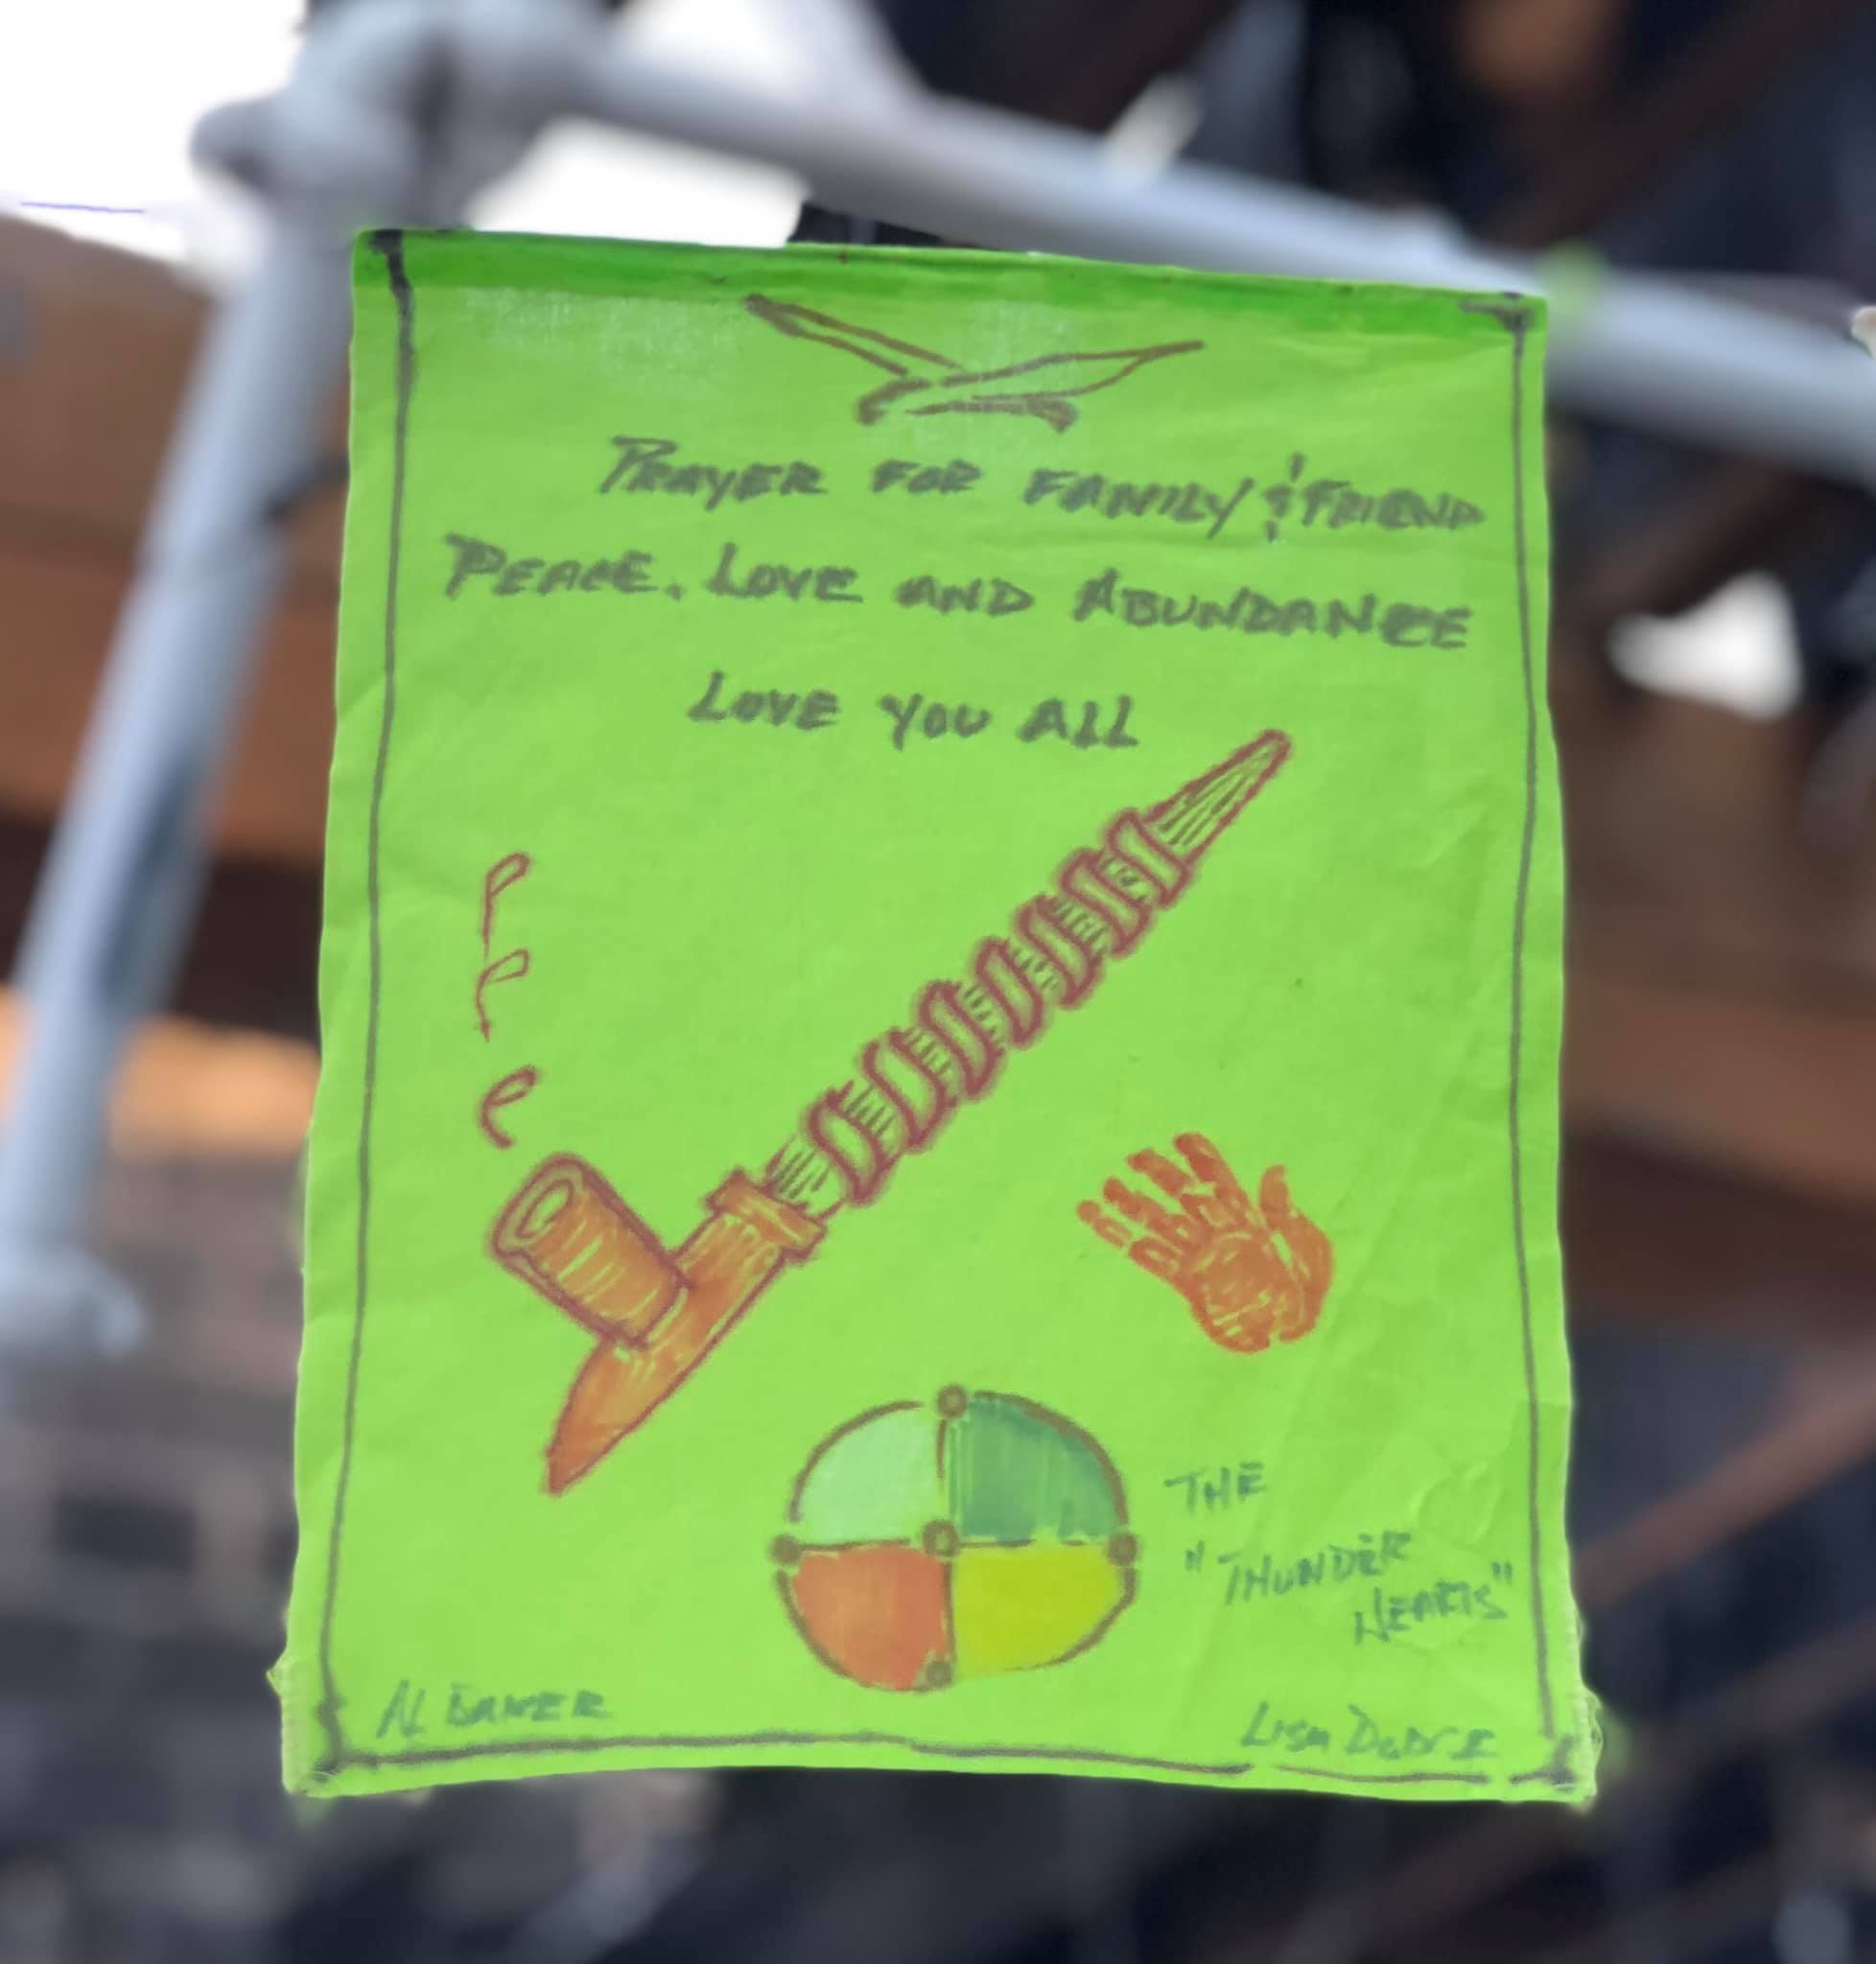 PRAYER FOR FAMILY & FRIEND
PEACE. LOVE AND ABUNDANCE
LOVE YOU ALL
THE
"THUNDER
HEARTS"
AL BAKER
LISA